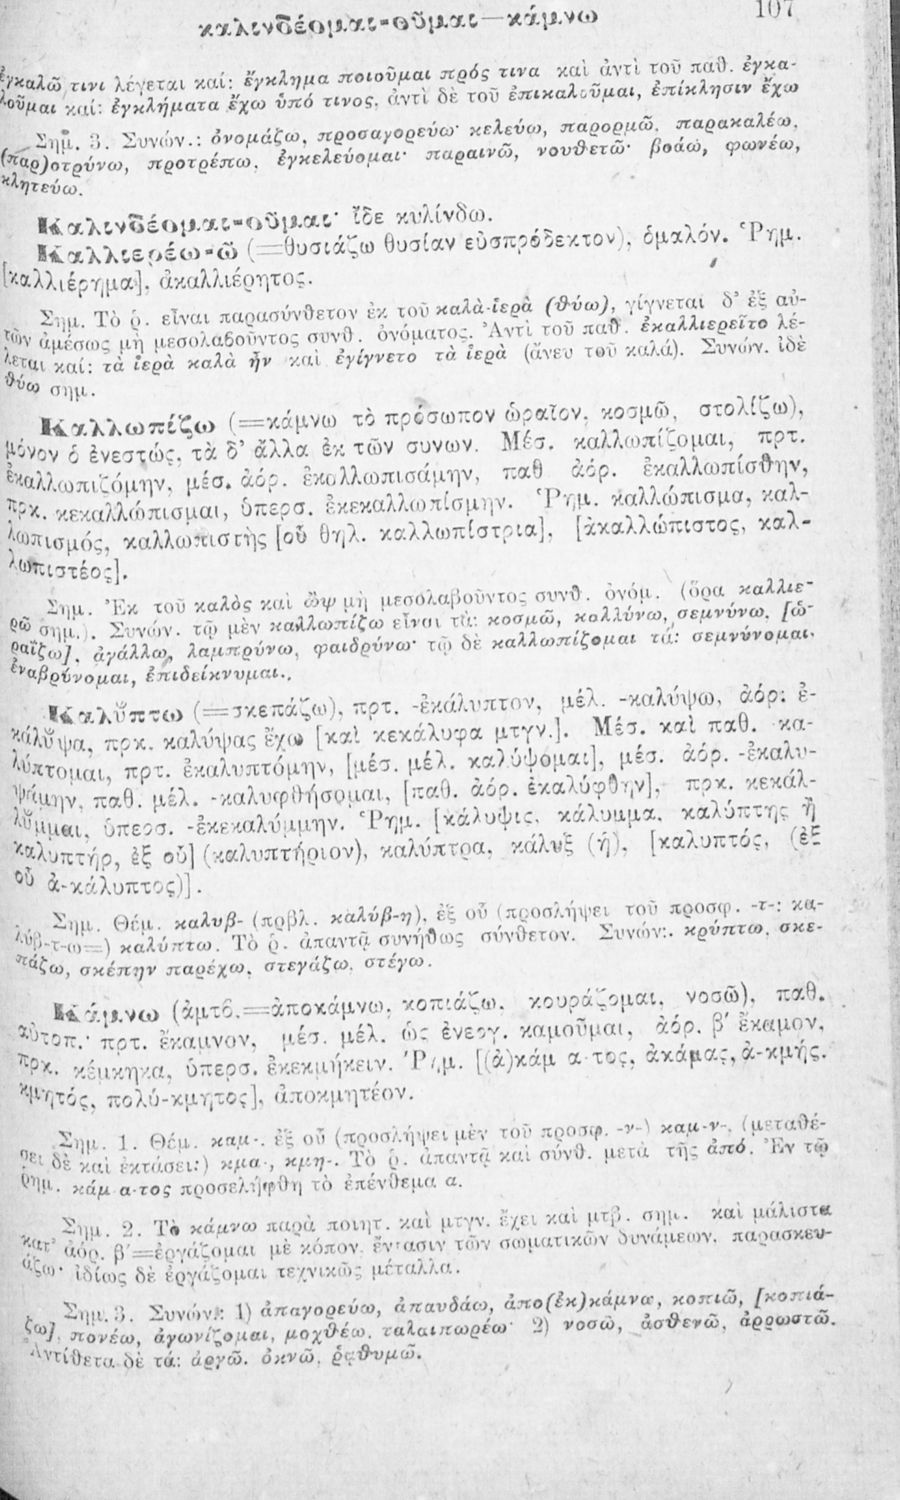 καλινδέομαι-οῦμαι—κάμνω 107
ἐγκαλῶ τινι λέγεται καί: ἔγκλημα ποιοῦμαι πρός τινα καὶ ἀντὶ τοῦ παθ. ἐγκα-
λοῦμαι καί: ἐγκλήματα ἔχω ὑπό τινος, ἀντὶ δὲ τοῦ ἐπικαλοῦμαι, ἐπίκλησιν ἔχω
Σημ. 3. Συνών.: ὀνομάζω, προσαγορεύω· κελεύω, παρορμῶ, παρακαλέω,
(παρ)οτρύνω, προτρέπω, ἐγκελεύομαι· παραινῶ, νουθετῶ· βοάω, φωνέω,
κλητεύω.
Καλινδέομαι-οῦμαι· ἴδε κυλίνδω.
Καλλιερέω-ῶ (=θυσιάζω θυσίαν εὐσπρόδεκτον), ὁμαλόν. Ῥημ.
[καλλιέρημα], ἀκαλλιέρητος.
Σημ. Τὸ ῥ. εἶναι παρασύνθετον ἐκ τοῦ καλὰ-ἱερὰ (θύω), γίγνεται δ' ἐξ αὐ-
τῶν ἀμέσως μὴ μεσολαβοῦντος συνθ. ὀνόματος. Ἀντὶ τοῦ παθ. ἐκαλλιερεῖτο λέ-
λεται καί: τὰ ἱερὰ καλὰ ἦν καὶ ἐγίγνετο τὰ ἱερὰ (ἄνευ τοῦ καλά). Συνών. ἰδὲ
θύω σημ.
Καλλωπίζω (=κάμνω τὸ πρόσωπον ὡραῖον, κοσμῶ, στολίζω),
μόνον ὁ ἐνεστώς, τὰ δ' ἄλλα ἐκ τῶν συνων. Μέσ. καλλωπίζομαι, πρτ.
ἐκαλλωπιζόμην, μέσ. ἀόρ. ἐκαλλωπισάμην, παθ ἀόρ. ἐκαλλωπίσθην,
πρκ. κεκαλλώπισμαι, ὑπερσ. ἐκεκαλλωπίσμην. Ῥημ. καλλώπισμα, καλ-
λωπισμός, καλλωπιστὴς [οὗ θηλ. καλλωπίστρια], [ἀκαλλώπιστος, καλ-
λωπιστέος].
Σημ. Ἐκ τοῦ καλὸς καὶ ὢψ μὴ μεσολαβοῦντος συνθ. ὀνόμ. (ὅρα καλλιε-
ρῶ σημ.). Συνών. τῷ μὲν καλλωπίζω εἶναι τὰ: κοσμῶ, καλλύνω, σεμνύνω, [ὡ-
ραΐζω], ἀγάλλω, λαμπρύνω, φαιδρύνω· τῷ δὲ καλλωπίζομαι τά: σεμνύνομαι,
ἐναβρύνομαι, ἐπιδείκνυμαι..
Καλύπτω (=σκεπάζω), πρτ. -ἐκάλυπτον, μέλ. -καλύψω, ἀόρ: ἐ-
κάλυψα, πρκ. καλύψας ἔχω [καὶ κεκάλυφα μτγν.]. Μέσ. καὶ παθ. κα-
λύπτομαι, πρτ. ἐκαλυπτόμην, [μέσ. μέλ. καλύψομαι], μέσ. ἀόρ. -ἐκαλυ-
ψάμην, παθ. μέλ. -καλυφθήσομαι, [παθ. ἀόρ. ἐκαλύφθην], πρκ. κεκάλ-
λυμμαι, ὑπερσ. -ἐκεκαλύμμην. Ῥημ. [κάλυψις, κάλυμμα, καλύπτης ἢ
καλυπτήρ, ἐξ οὗ] (καλυπτήριον), καλύπτρα, κάλυξ (ἡ), [καλυπτός, (ἐξ
οὗ ἀ-κάλυπτος)].
Σημ. Θέμ. καλυβ- (πρβλ. καλύβ-η), ἐξ οὗ (προσλήψει τοῦ προσφ. -τ-: κα-
λύβ-τ-ω=) καλύπτω. Τὸ ῥ. ἀπαντᾷ συνήθως σύνθετον. Συνών:. κρύπτω, σκε-
πάζω, σκέπην παρέχω, στεγάζω, στέγω.
Κάμνω (ἀμτβ.=ἀποκάμνω, κοπιάζω, κουράζομαι, νοσῶ), παθ.
αὐτοπ. πρτ. ἔκαμνον, μέσ. μέλ. ὡς ἐνεργ. καμοῦμαι, ἀόρ. β΄ ἔκαμον,
πρκ. κέκμηκα, ὑπερσ. ἐκεκμήκειν. Ῥημ. [(ἀ)κάμ α-τος, ἀκάμας, ἀ-κμής.
κμητός, πολύ-κμητος], ἀποκμητέον.
Σημ. 1. Θέμ. καμ-. ἐξ οὗ (προσλήψει μὲν τοῦ προσφ. -ν-) καμ-ν-, (μεταθέ-
σει δὲ καὶ ἐκτάσει:) κμα-, κμη-. Τὸ ῥ. ἀπαντᾷ καὶ σύνθ. μετὰ τῆς ἀπό. Ἐν τῷ
ῥημ. κάμ-α-τος προσελήφθη τὸ ἐπένθεμα α.
Σημ. 2. Τὸ κάμνω παρὰ ποιητ. καὶ μτγν. ἔχει καὶ μτβ. σημ. καὶ μάλιστα
κατ' ἀόρ. β΄=ἐργάζομαι μὲ κόπον, ἔντασιν τῶν σωματικῶν δυνάμεων, παρασκευ-
άζω· ἰδίως δὲ ἐργάζομαι τεχνικῶς μέταλλα.
Σημ. 3. Συνών.: 1) ἀπαγορεύω, ἀπαυδάω, ἀπο(ἐκ)κάμνω, κοπιῶ, [κοπιά-
ζω], πονέω, ἀγωνίζομαι, μοχθέω, ταλαιπωρέω· 2) νοσῶ, ἀσθενῶ, ἀρρωστῶ.
Ἀντίθετα δὲ τά: ἀργῶ, ὀκνῶ, ῥᾳθυμῶ.